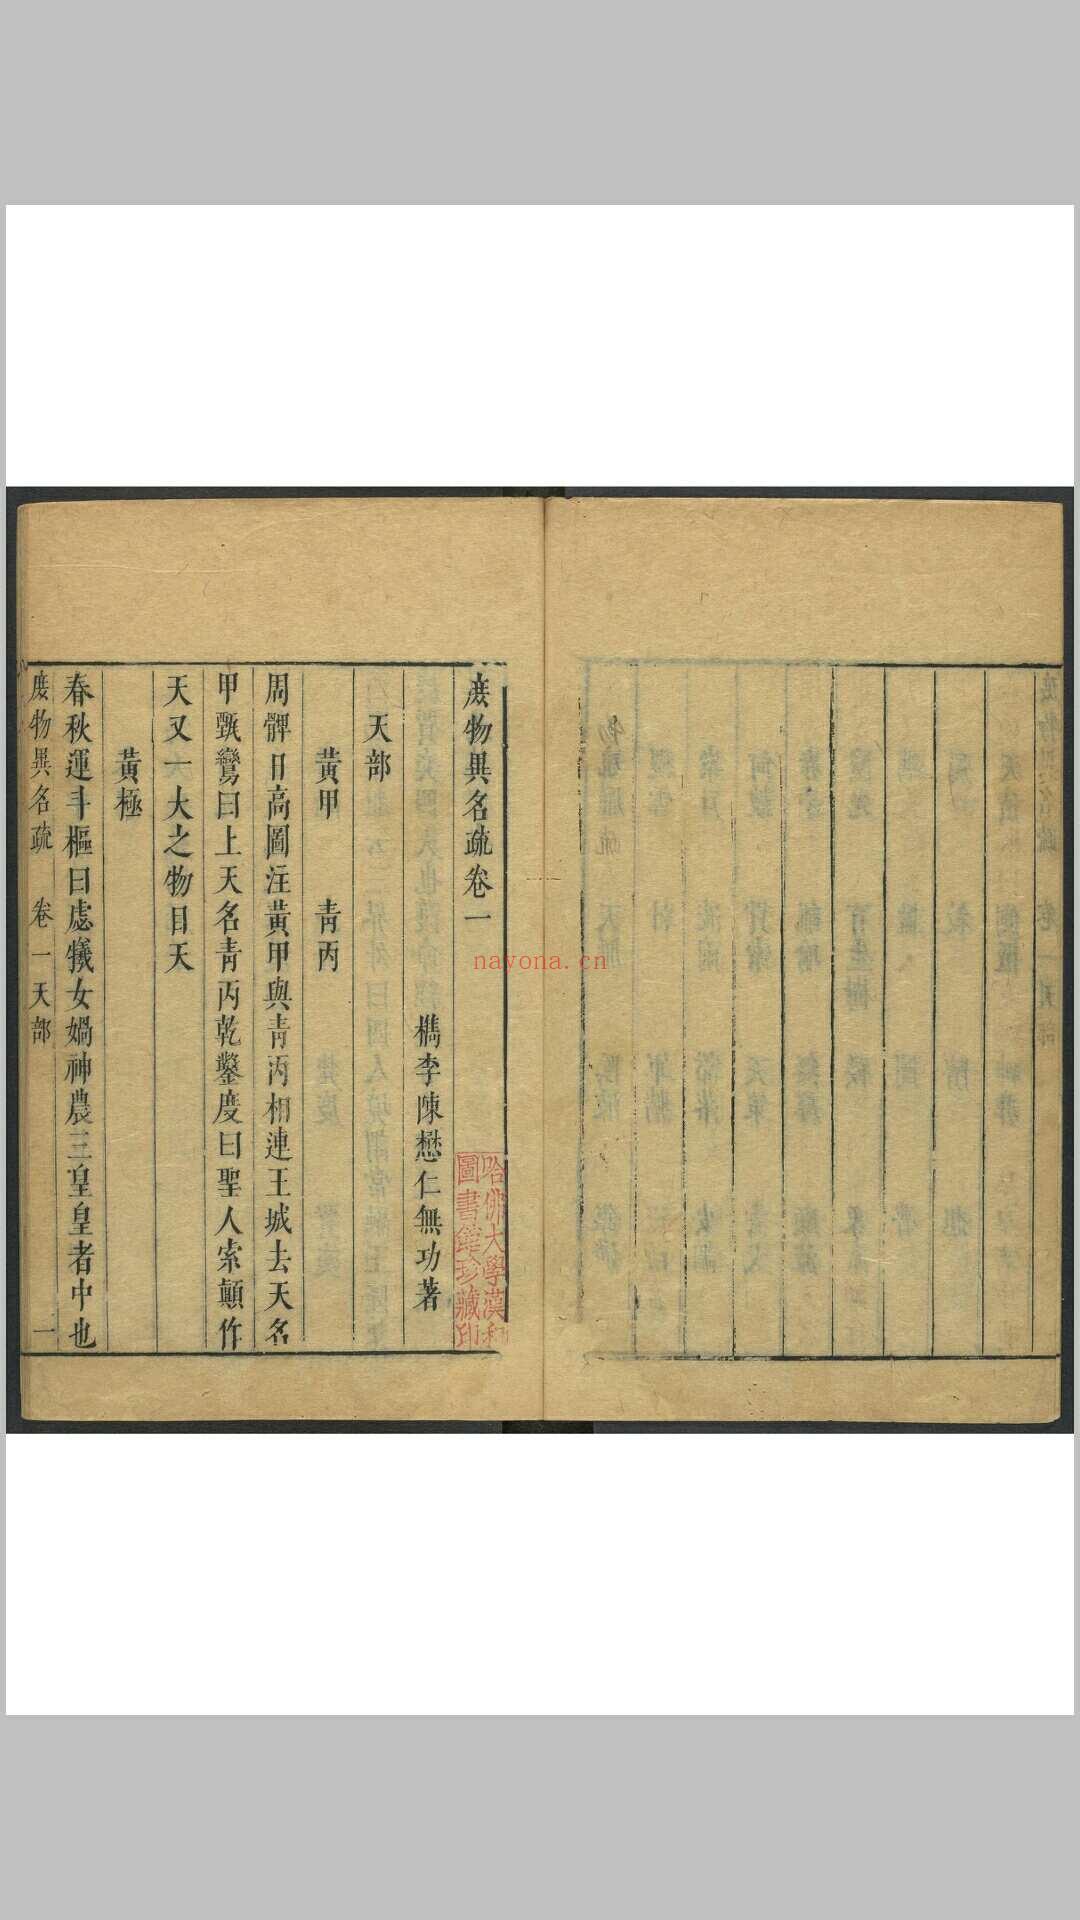 庻物異名疏卷一
檇李陳懋仁無功著
天部
黃甲 青丙
周髀日高圖注黃甲與青丙相連王城去天名
甲甄鸞曰上天名青丙乾鑿度曰聖人索顚作
天又一大之物目天
黃極
春秋運斗樞曰虙犧女媧神農三皇皇者中也
庻物異名疏 卷一天部 一
哈佛大學漢和
圖書館珍藏印
nayona.cn